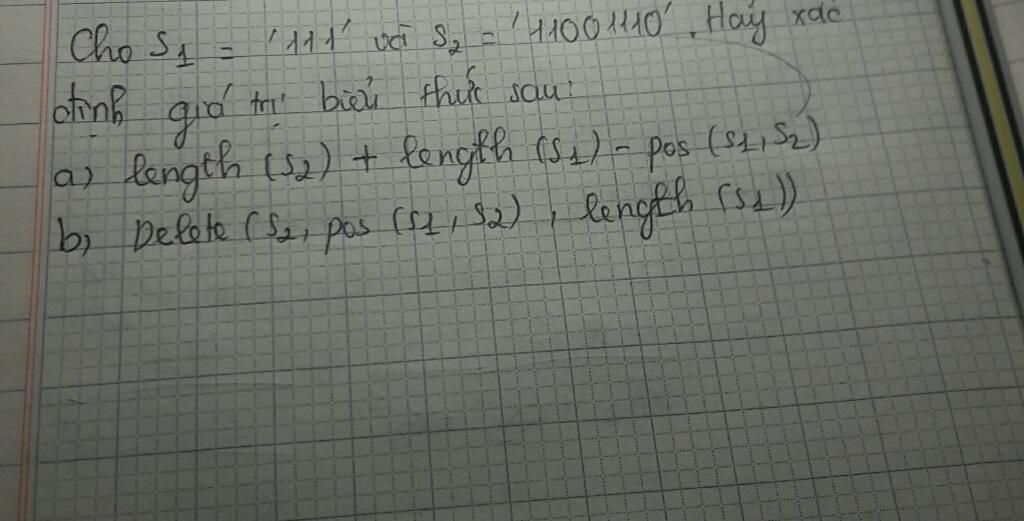 Cho S1 = '111' và S2 = '11001110'. Hãy xác
định giá trị biểu thức sau:
a) length (S2) + length (S1) - pos (S1, S2)
b) Delete (S2, pos (S1, S2), length (S1))